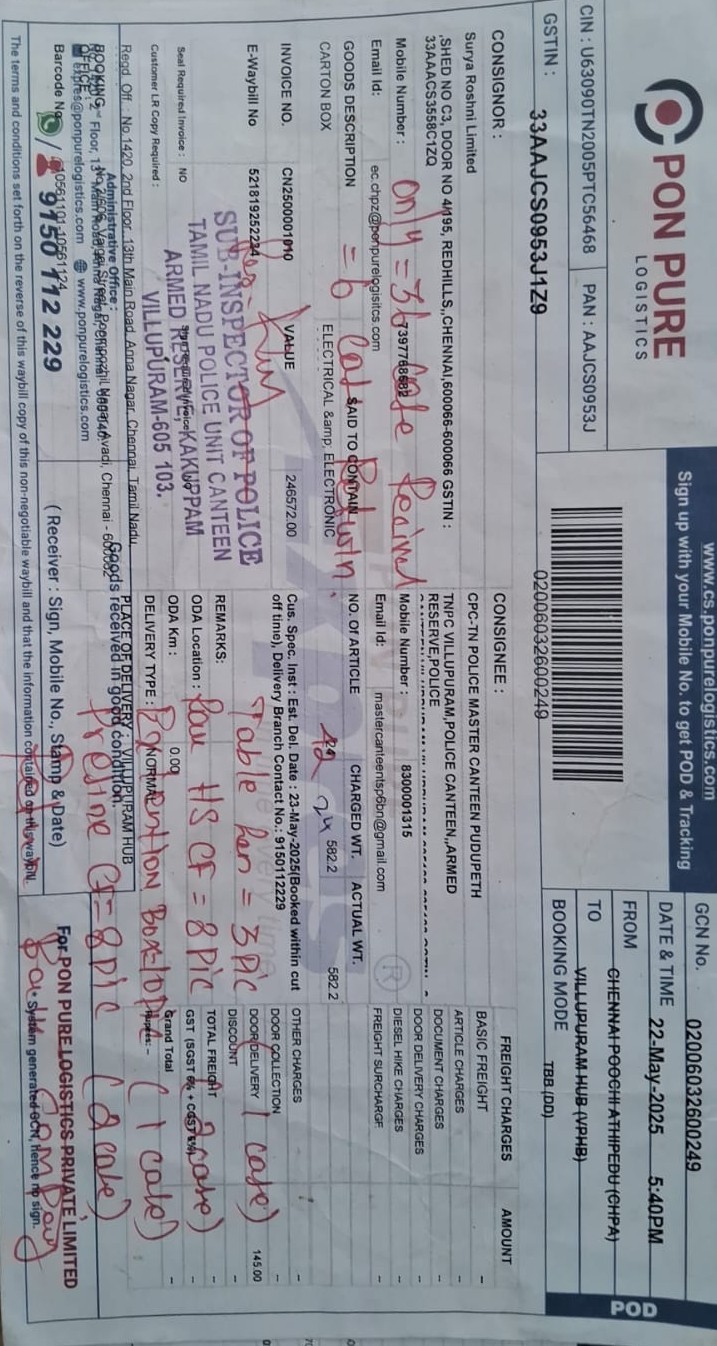 PON PURE
LOGISTICS
www.cs.ponpurelogistics.com
Sign up with your Mobile No. to get POD & Tracking
CIN : U63090TN2005PTC56468 PAN : AAJCS0953J
GSTIN : 33AAJCS0953J1Z9
02006032600249
GCN No. 02006032600249
DATE & TIME 22-May-2025 5:40PM
FROM CHENNAI POOCHI ATHIPEDU (CHPA)
TO VILLUPURAM HUB (VPHB)
BOOKING MODE TBB (DD)
POD
CONSIGNOR :
Surya Roshni Limited
,SHED NO C3, DOOR NO 4/195, REDHILLS,,CHENNAI,600066-600066 GSTIN :
33AAACS3558C1ZQ
Mobile Number : 7397768682
Email Id: ec.chpz@ponpurelogisitcs.com
only = 36 case
CONSIGNEE :
CPC-TN POLICE MASTER CANTEEN PUDUPETH
TNPC VILLUPURAM,POLICE CANTEEN,,ARMED
RESERVE,POLICE
Mobile Number : 8300001315
Email Id: mastercanteentsp6bn@gmail.com
R
FREIGHT CHARGES AMOUNT
BASIC FREIGHT -
ARTICLE CHARGES -
DOCUMENT CHARGES -
DOOR DELIVERY CHARGES -
DIESEL HIKE CHARGES -
FREIGHT SURCHARGE -
OTHER CHARGES -
DOOR COLLECTION -
DOOR DELIVERY 145.00
DISCOUNT -
TOTAL FREIGHT -
GST (SGST 6% + CGST 6%) -
Grand Total -
Rupees: -
GOODS DESCRIPTION SAID TO CONTAIN NO. Of ARTICLE CHARGED WT. ACTUAL WT.
CARTON BOX ELECTRICAL &amp; ELECTRONIC 24 582.2 582.2
= 6
24
INVOICE NO. CN2500001010 VALUE 246572.00
E-Waybill No 521819252234
Seal Required Invoice : NO
Customer LR Copy Required :
SUB-INSPECTOR OF POLICE
TAMIL NADU POLICE UNIT CANTEEN
ARMED RESERVE, KAKUPPAM
VILLUPURAM-605 103.
Cus. Spec. Inst : Est. Del. Date : 23-May-2025(Booked within cut
off time), Delivery Branch Contact No.: 9150112229
REMARKS:
ODA Location :
ODA Km : 0.00
DELIVERY TYPE : NORMAL
PLACE OF DELIVERY : VILLUPURAM HUB
Table fan = 3 Pic (1 case)
HS CF = 8 Pic (2 case)
Box (1 case)
CF = 8 Pic (2 case)
Regd. Off. : No.1420, 2nd Floor, 13th Main Road, Anna Nagar, Chennai, Tamil Nadu
Administrative Office :
BOOKING
OFFICE
expres@ponpurelogistics.com www.ponpurelogistics.com
Barcode No. 10561101-10561124
9150 112 229
Goods received in good condition.
( Receiver : Sign, Mobile No., Stamp & Date)
For PON PURE LOGISTICS PRIVATE LIMITED
* System generated GCN, Hence no sign.
The terms and conditions set forth on the reverse of this waybill copy of this non-negotiable waybill and that the information contained on this waybill.